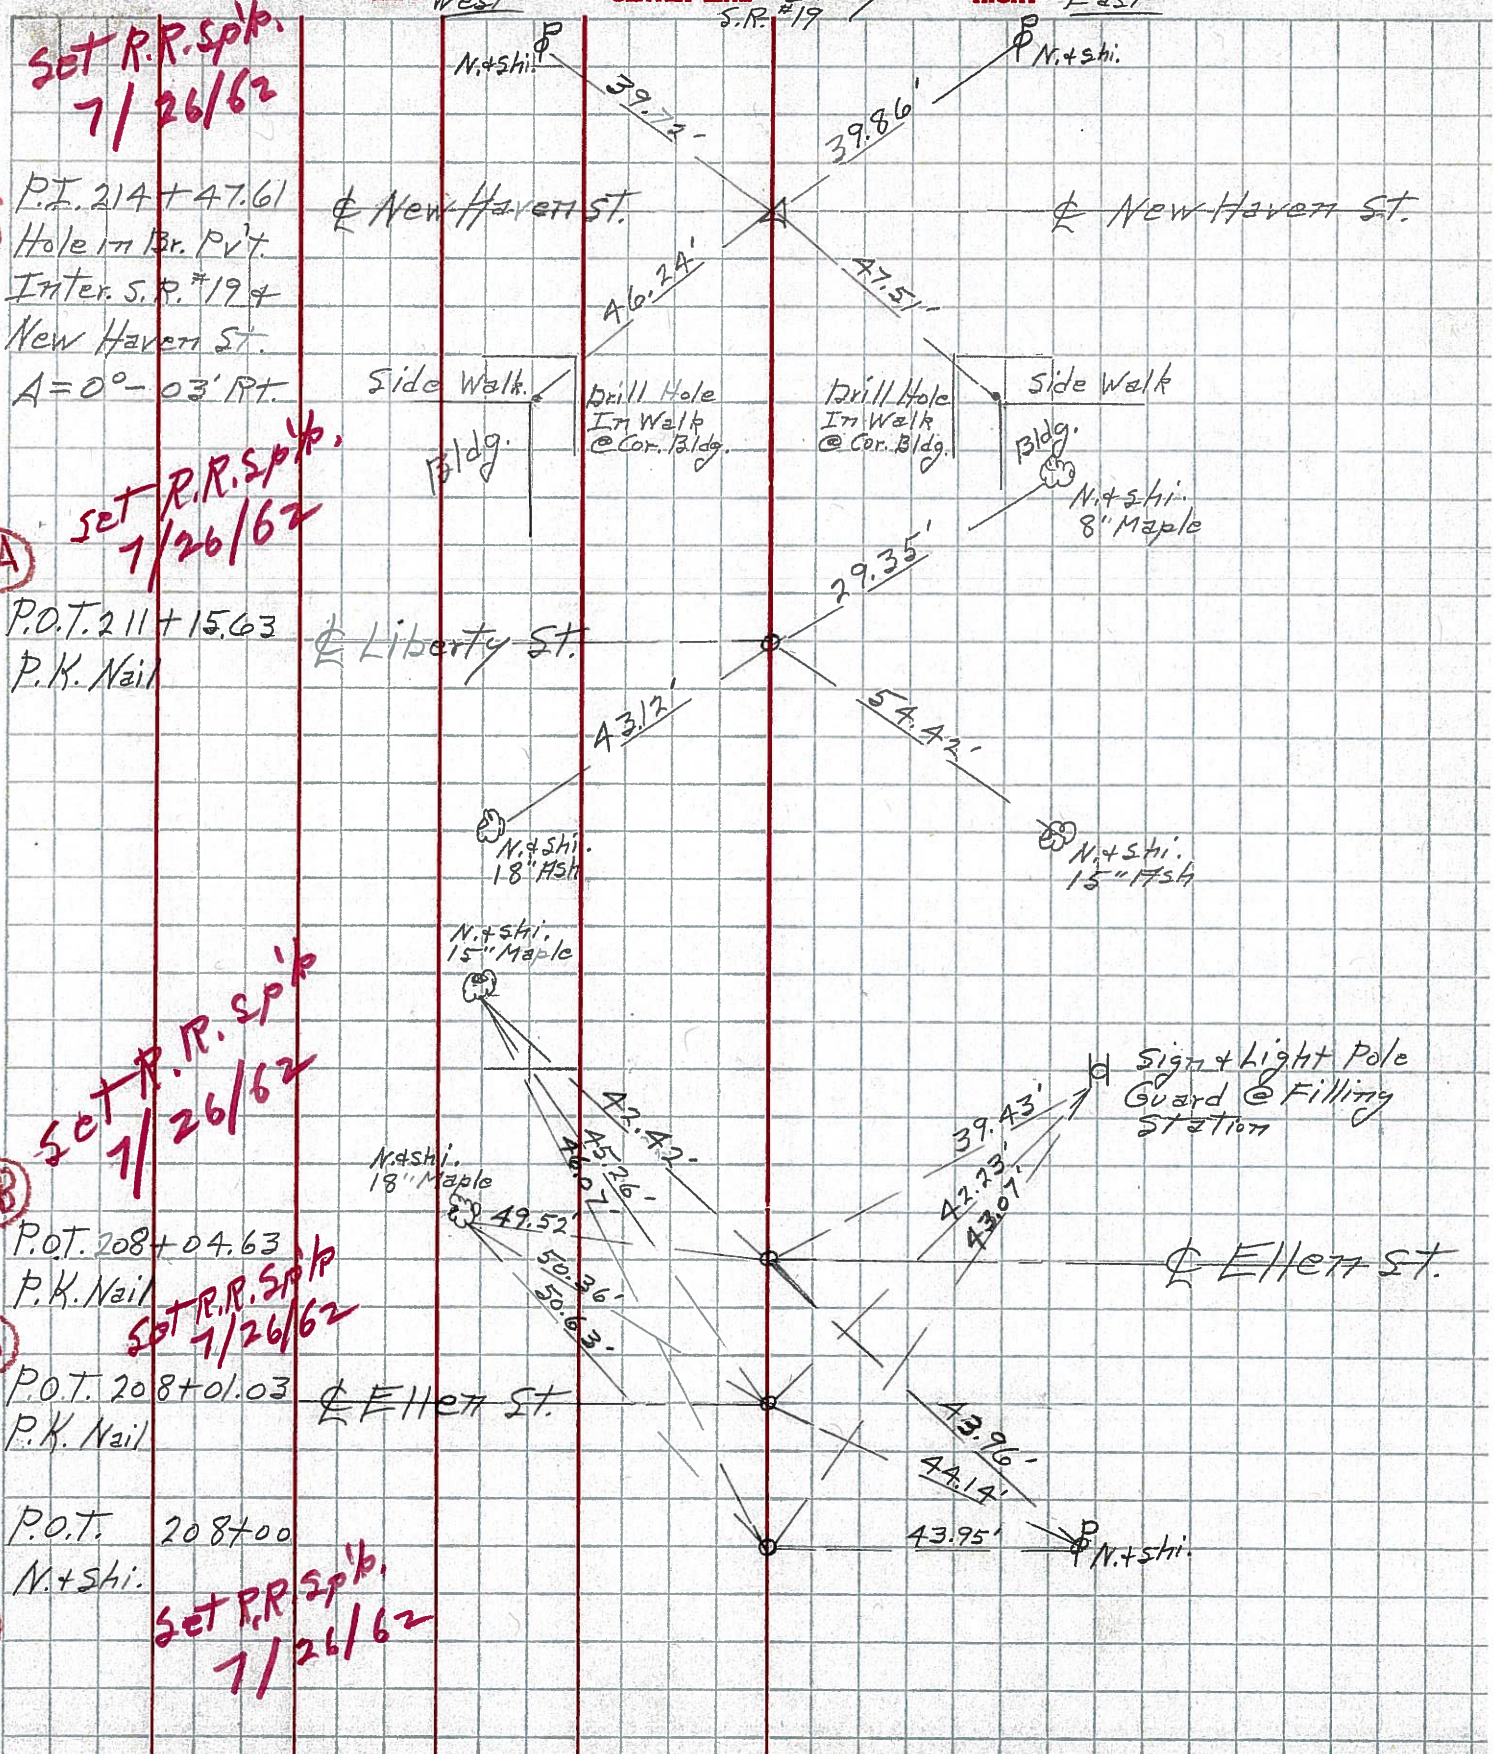 West
S.R. #19
East
Set R.R. Spik.
7/26/62
N.+Shi.
N.+Shi.
39.72'
39.86'
P.I. 214+47.61
Hole in Br. Pv't.
Inter. S.R. #19 &
New Haven St.
Δ=0°-03' Rt.
℄ New Haven St.
℄ New Haven St.
46.24'
47.51'
Side Walk.
Drill Hole
In Walk
@ Cor. Bldg.
Bldg.
Drill Hole
In Walk
@ Cor. Bldg.
Side Walk
Bldg.
N.+Shi.
8" Maple
Set R.R. Spik.
7/26/62
A
29.35'
P.O.T. 211+15.63
P.K. Nail
℄ Liberty St.
43.12'
54.42'
N.+Shi.
18" Ash
N.+Shi.
15" Ash
N.+Shi.
15" Maple
Set R.R. Spik
7/26/62
Sign & Light Pole
Guard @ Filling
Station
42.42'
45.26'
46.07'
39.43'
42.23'
43.07'
N.+Shi.
18" Maple
B
49.52'
50.36'
50.63'
P.O.T. 208+04.63
P.K. Nail
℄ Ellen St.
Set R.R. Spik
7/26/62
P.O.T. 208+01.03
P.K. Nail
℄ Ellen St.
43.96'
44.14'
43.95'
N.+Shi.
P.O.T. 208+00
N.+Shi.
Set R.R. Spik.
7/26/62